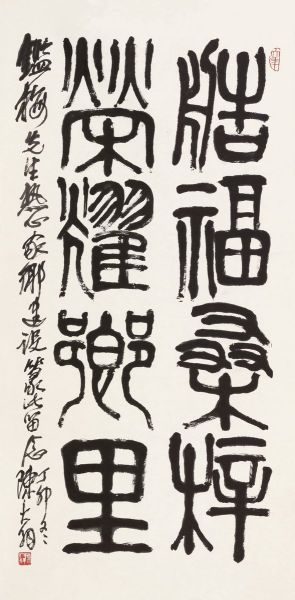 造福桑梓
榮耀鄉里
鑑梅先生熱心家鄉建設篆此留念
丁卯冬
陳大羽